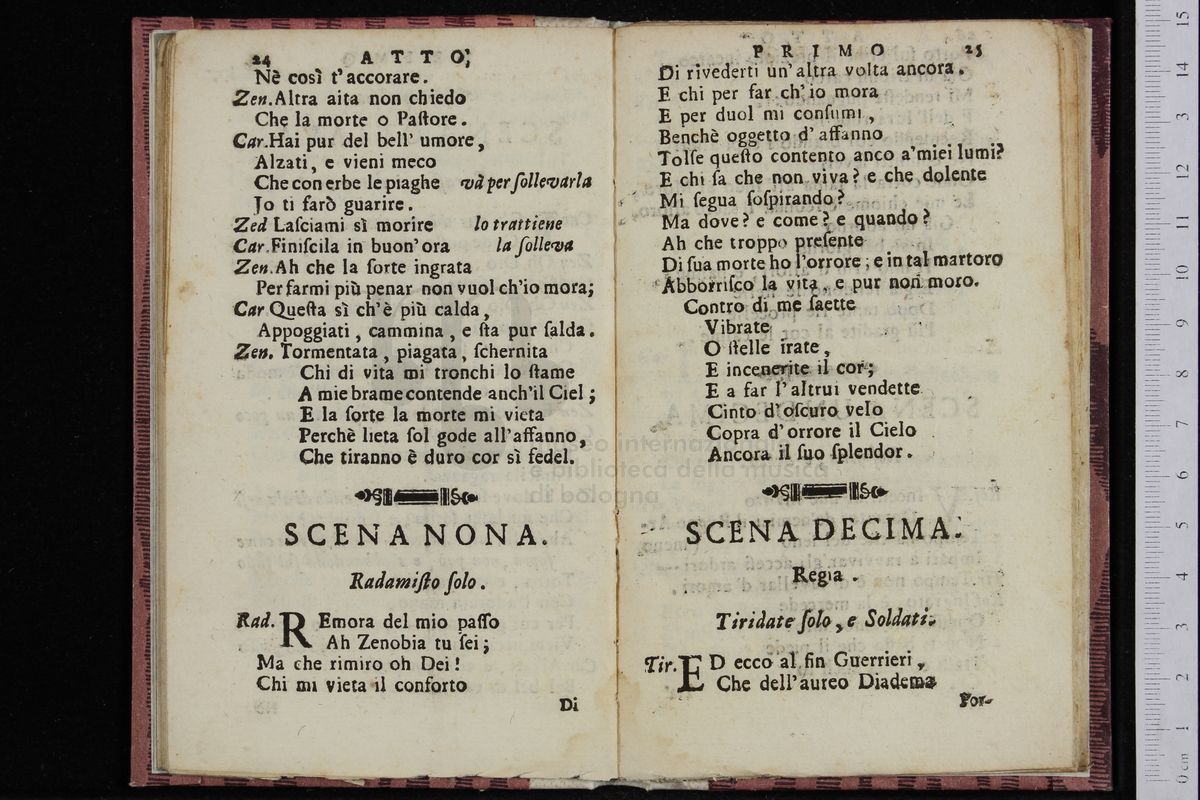 24 ATTO;
Nè così t'accorare.
Zen. Altra aita non chiedo
Che la morte o Paſtore.
Car. Hai pur del bell' umore,
Alzati, e vieni meco
Che con erbe le piaghe và per ſollevarla
Jo ti farò guarire.
Zed Laſciami sì morire lo trattiene
Car. Finiſcila in buon' ora la ſolleva
Zen. Ah che la ſorte ingrata
Per farmi più penar non vuol ch'io mora;
Car Queſta sì ch'è più calda,
Appoggiati, cammina, e ſta pur ſalda.
Zen. Tormentata, piagata, ſchernita
Chi di vita mi tronchi lo ſtame
A mie brame contende anch'il Ciel;
E la ſorte la morte mi vieta
Perchè lieta ſol gode all'affanno,
Che tiranno è duro cor sì fedel.
SCENA NONA.
Radamiſto ſolo.
Rad. REmora del mio paſſo
Ah Zenobia tu ſei;
Ma che rimiro oh Dei!
Chi mi vieta il conforto
Di
PRIMO 25
Di rivederti un' altra volta ancora.
E chi per far ch' io mora
E per duol mi conſumi,
Benchè oggetto d' affanno
Tolſe queſto contento anco a' miei lumi?
E chi ſa che non viva? e che dolente
Mi ſegua ſoſpirando?
Ma dove? e come? e quando?
Ah che troppo preſente
Di ſua morte ho l'orrore; e in tal martoro
Abborriſco la vita, e pur non moro.
Contro di me ſaette
Vibrate
O ſtelle irate,
E incenerite il cor;
E a far l' altrui vendette
Cinto d' oſcuro velo
Copra d' orrore il Cielo
Ancora il ſuo ſplendor.
SCENA DECIMA.
Regia.
Tiridate ſolo, e Soldati.
Tir. ED ecco al fin Guerrieri,
Che dell'aureo Diadema
Por-
museo internazionale
e biblioteca della musica
di bologna
0 cm 1 2 3 4 5 6 7 8 9 10 11 12 13 14 15